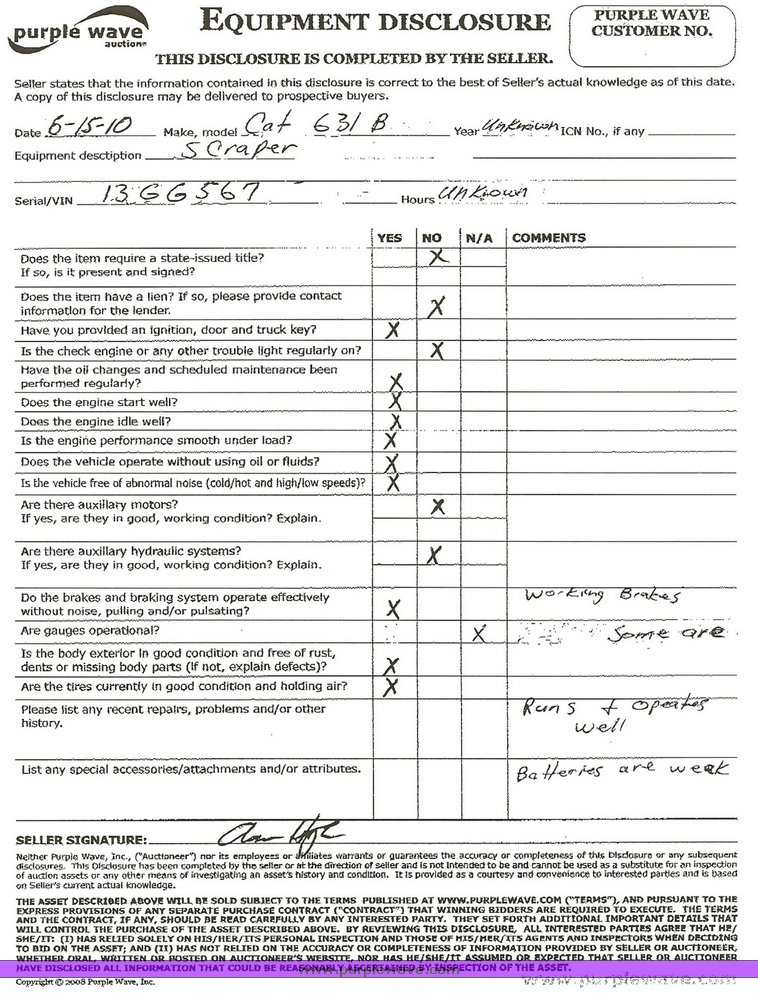 purple wave
auction®
EQUIPMENT DISCLOSURE
PURPLE WAVE
CUSTOMER NO.
THIS DISCLOSURE IS COMPLETED BY THE SELLER.
Seller states that the information contained in this disclosure is correct to the best of Seller's actual knowledge as of this date.
A copy of this disclosure may be delivered to prospective buyers.
Date 6-15-10 Make, model Cat 631 B Year Unknown ICN No., if any
Equipment desctiption Scraper
Serial/VIN 13GG567 Hours Unknown
YES NO N/A COMMENTS
Does the item require a state-issued title? X
If so, is it present and signed?
Does the item have a lien? If so, please provide contact
information for the lender. X
Have you provided an ignition, door and truck key? X
Is the check engine or any other trouble light regularly on? X
Have the oil changes and scheduled maintenance been
performed regularly? X
Does the engine start well? X
Does the engine idle well? X
Is the engine performance smooth under load? X
Does the vehicle operate without using oil or fluids? X
Is the vehicle free of abnormal noise (cold/hot and high/low speeds)? X
Are there auxiliary motors? X
If yes, are they in good, working condition? Explain.
Are there auxiliary hydraulic systems? X
If yes, are they in good, working condition? Explain.
Do the brakes and braking system operate effectively Working Brakes
without noise, pulling and/or pulsating? X
Are gauges operational? X Some are
Is the body exterior in good condition and free of rust,
dents or missing body parts (if not, explain defects)? X
Are the tires currently in good condition and holding air? X
Please list any recent repairs, problems and/or other Runs + Opeates
history. well
List any special accessories/attachments and/or attributes. Batteries are weak
SELLER SIGNATURE:
Neither Purple Wave, Inc., ("Auctioneer") nor its employees or affiliates warrants or guarantees the accuracy or completeness of this Disclosure or any subsequent
disclosures. This Disclosure has been completed by the seller or at the direction of seller and is not intended to be and cannot be used as a substitute for an inspection
of auction assets or any other means of investigating an asset's history and condition. It is provided as a courtesy and convenience to interested parties and is based
on Seller's current actual knowledge.
THE ASSET DESCRIBED ABOVE WILL BE SOLD SUBJECT TO THE TERMS PUBLISHED AT WWW.PURPLEWAVE.COM ("TERMS"), AND PURSUANT TO THE
EXPRESS PROVISIONS OF ANY SEPARATE PURCHASE CONTRACT ("CONTRACT") THAT WINNING BIDDERS ARE REQUIRED TO EXECUTE. THE TERMS
AND THE CONTRACT, IF ANY, SHOULD BE READ CAREFULLY BY ANY INTERESTED PARTY. THEY SET FORTH ADDITIONAL IMPORTANT DETAILS THAT
WILL CONTROL THE PURCHASE OF THE ASSET DESCRIBED ABOVE. BY REVIEWING THIS DISCLOSURE, ALL INTERESTED PARTIES AGREE THAT HE/
SHE/IT: (I) HAS RELIED SOLELY ON HIS/HER/ITS PERSONAL INSPECTION AND THOSE OF HIS/HER/ITS AGENTS AND INSPECTORS WHEN DECIDING
TO BID ON THE ASSET; AND (II) HAS NOT RELIED ON THE ACCURACY OR COMPLETENESS OF INFORMATION PROVIDED BY SELLER OR AUCTIONEER,
WHETHER ORAL, WRITTEN OR POSTED ON AUCTIONEER'S WEBSITE, NOR HAS HE/SHE/IT ASSUMED OR EXPECTED THAT SELLER OR AUCTIONEER
HAVE DISCLOSED ALL INFORMATION THAT COULD BE REASONABLY ASCERTAINED BY INSPECTION OF THE ASSET.
www.purplewave.com
www.purplewave.com
Copyright © 2008 Purple Wave, Inc.